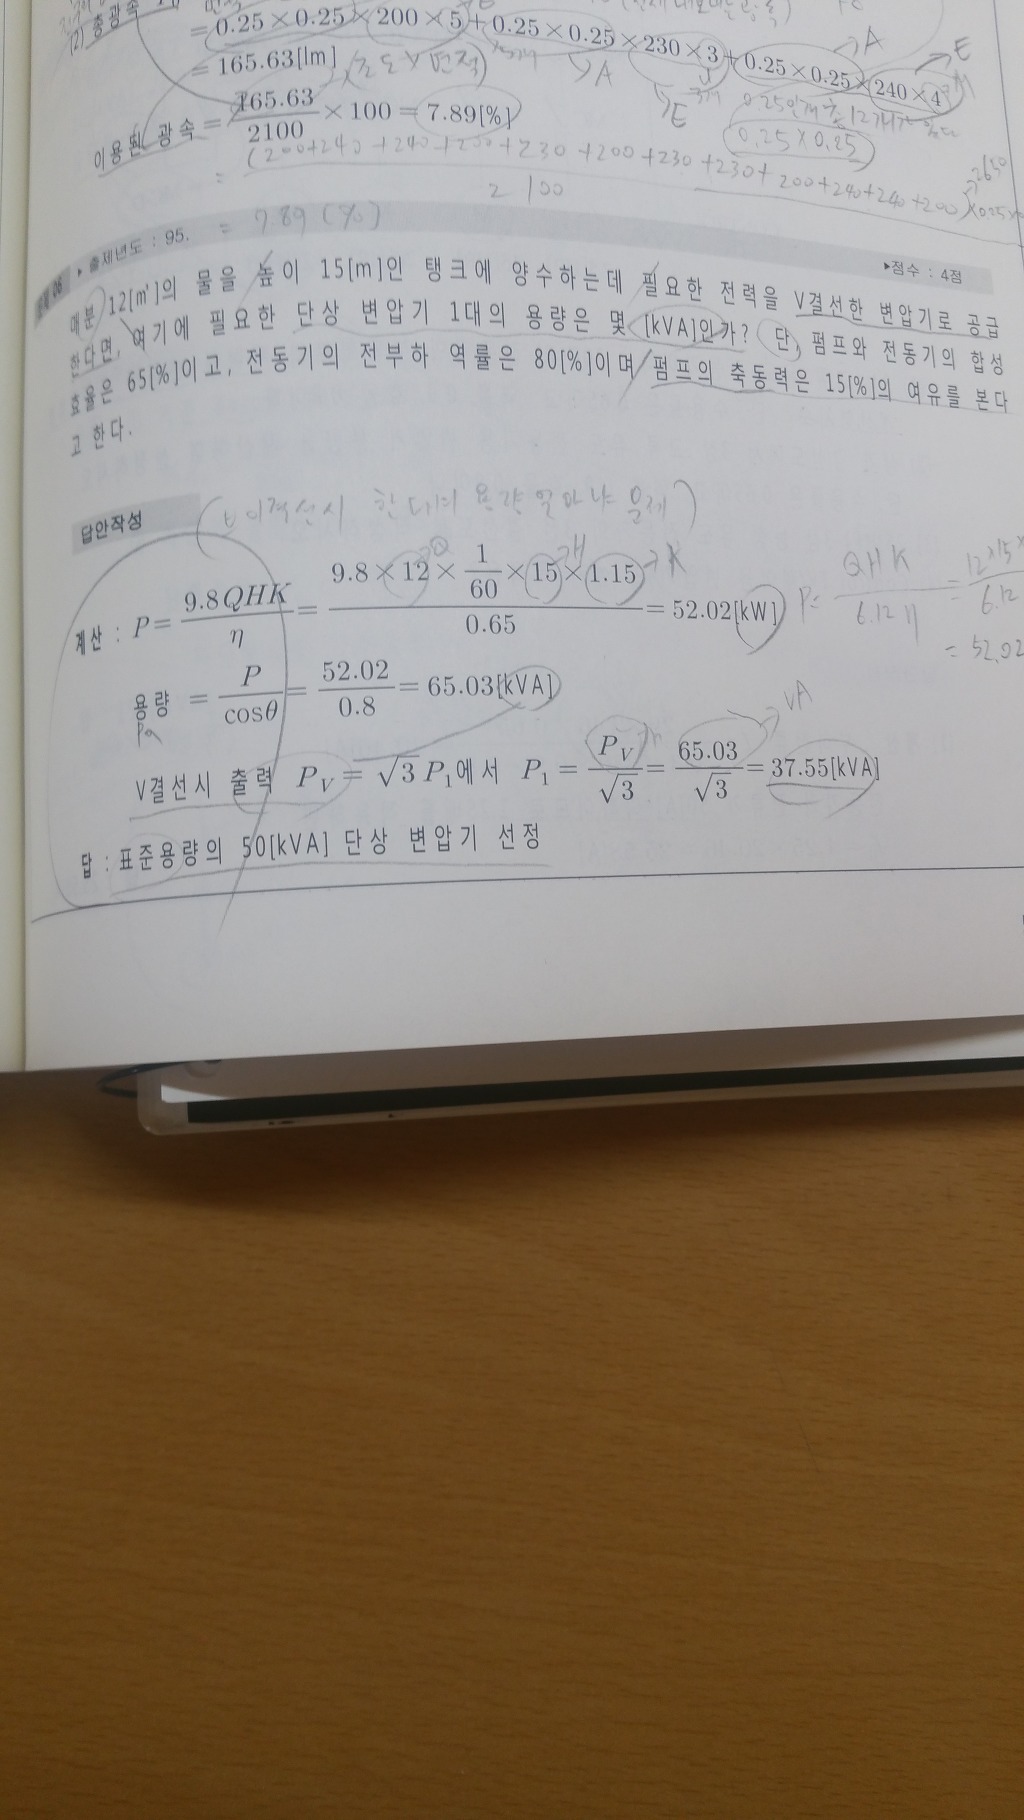 (2) 총광속
= 0.25×0.25×200×5+0.25×0.25×230×3+0.25×0.25×240×4
= 165.63[lm] (조도×면적) A E A E
이용된 광속 = 165.63/2100 ×100 = 7.89[%]
0.25×0.25
= (200+240+240+230+230+200+230+230+200+240+240+200)×0.25× 2650
2100
= 7.89 (%)
06 ▸출제년도 : 95. ▸점수 : 4점
매분 12[m³]의 물을 높이 15[m]인 탱크에 양수하는데 필요한 전력을 V결선한 변압기로 공급
한다면, 여기에 필요한 단상 변압기 1대의 용량은 몇 [kVA]인가? 단, 펌프와 전동기의 합성
효율은 65[%]이고, 전동기의 전부하 역률은 80[%]이며 펌프의 축동력은 15[%]의 여유를 본다
고 한다.
답안작성
(브이결선시 한대의 용량 얼마냐 문제)
계산 : P = 9.8QHK/η = 9.8×12×1/60×15×1.15/0.65 = 52.02[kW]
Q H K
P= QHK/6.12η = 12×15×/6.12
= 52.02
용량 = P/cosθ = 52.02/0.8 = 65.03[kVA]
Pa
VA
V결선시 출력 P_V = √3 P₁에서 P₁ = P_V/√3 = 65.03/√3 = 37.55[kVA]
답 : 표준용량의 50[kVA] 단상 변압기 선정